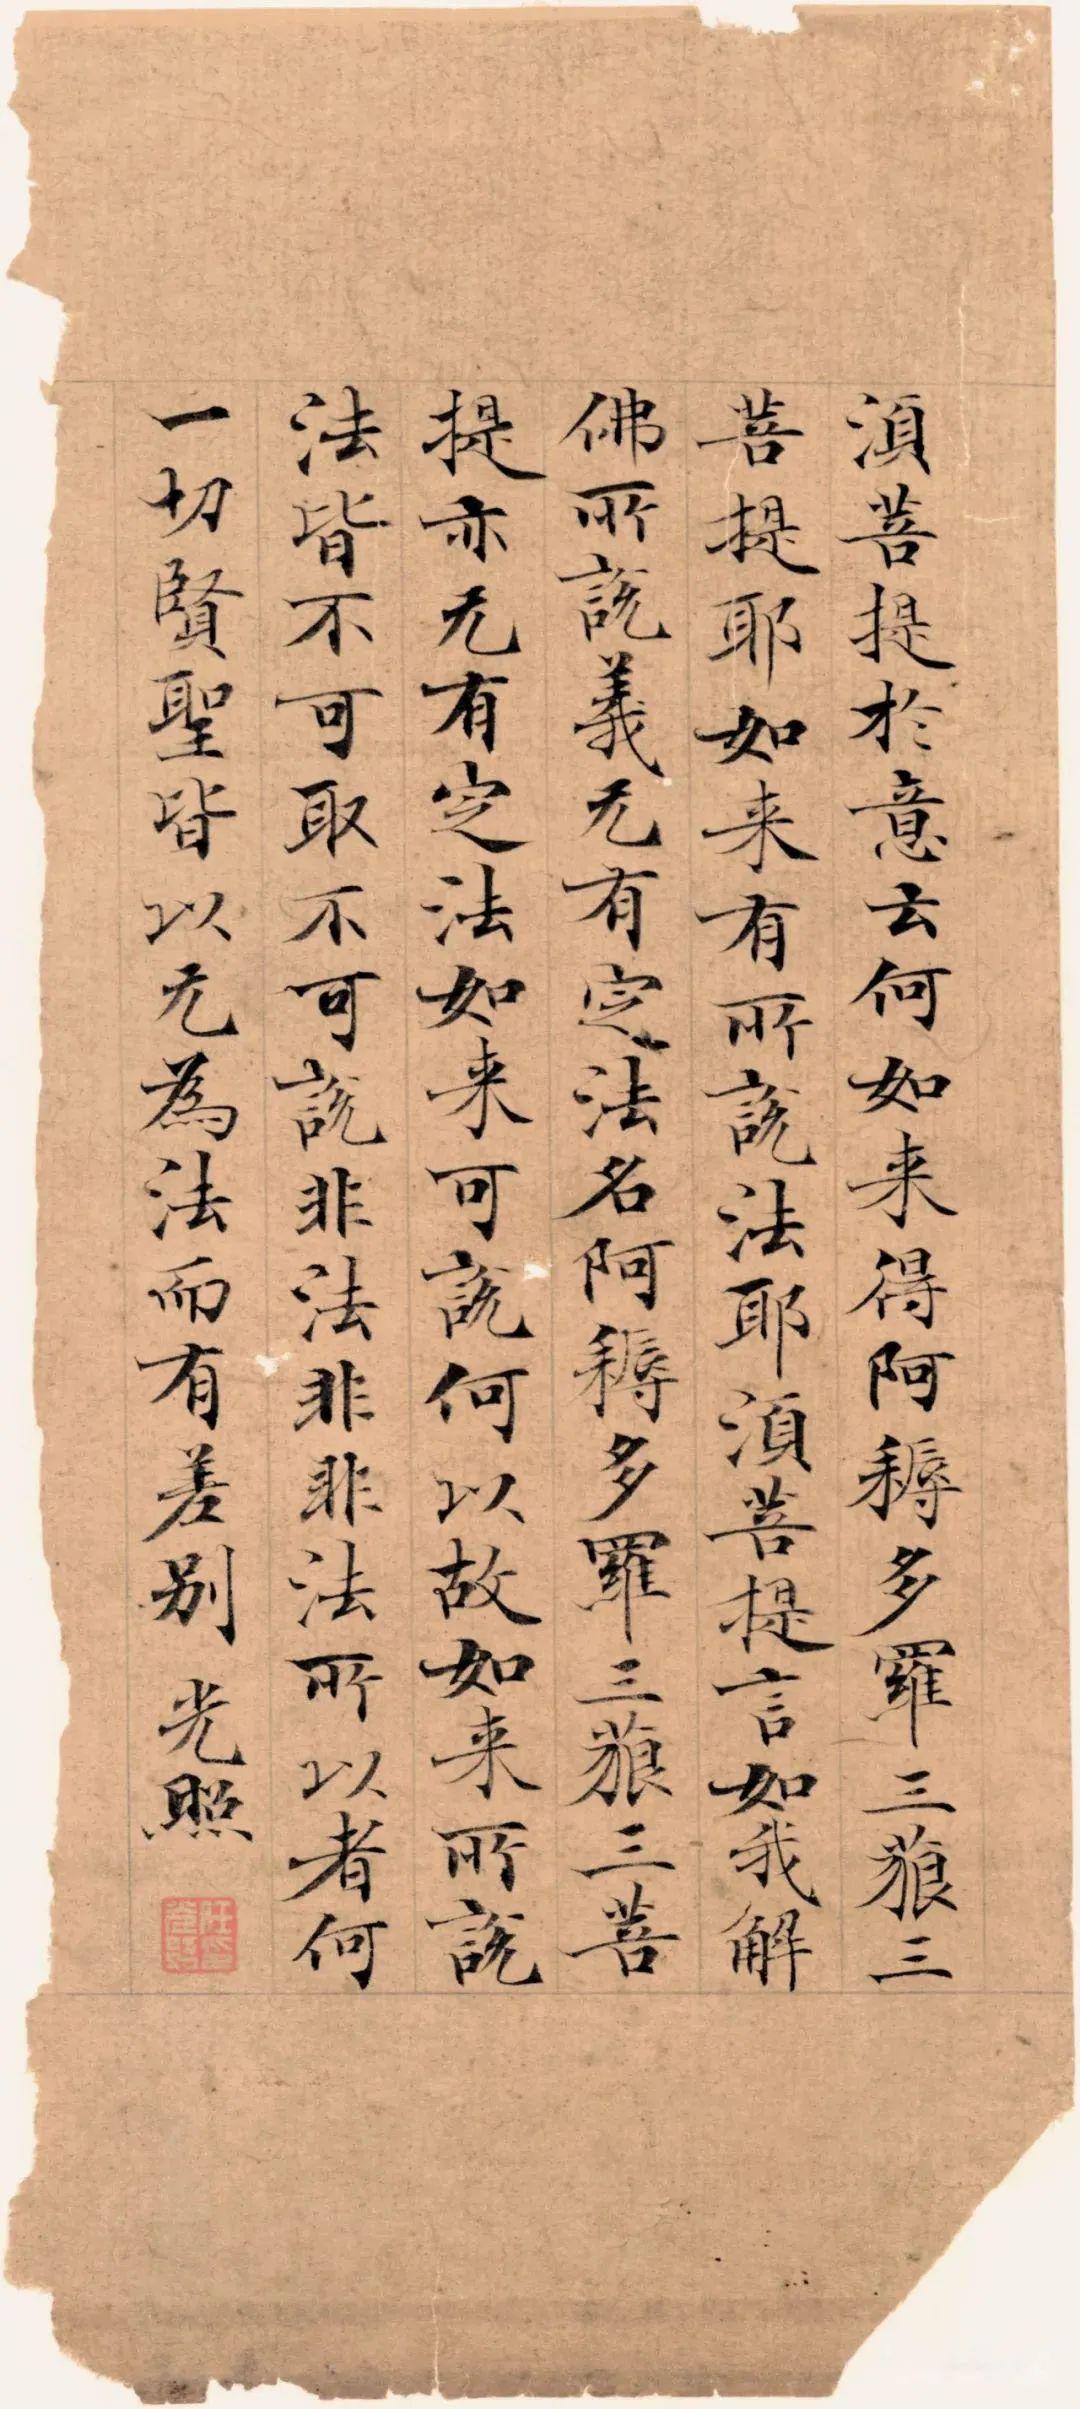 湏菩提於意云何如来得阿耨多羅三藐三
菩提耶如来有所説法耶湏菩提言如我解
佛所説義无有定法名阿耨多羅三藐三菩
提亦无有定法如来可説何以故如来所説
法皆不可取不可説非法非非法所以者何
一切賢聖皆以无為法而有差别 光照